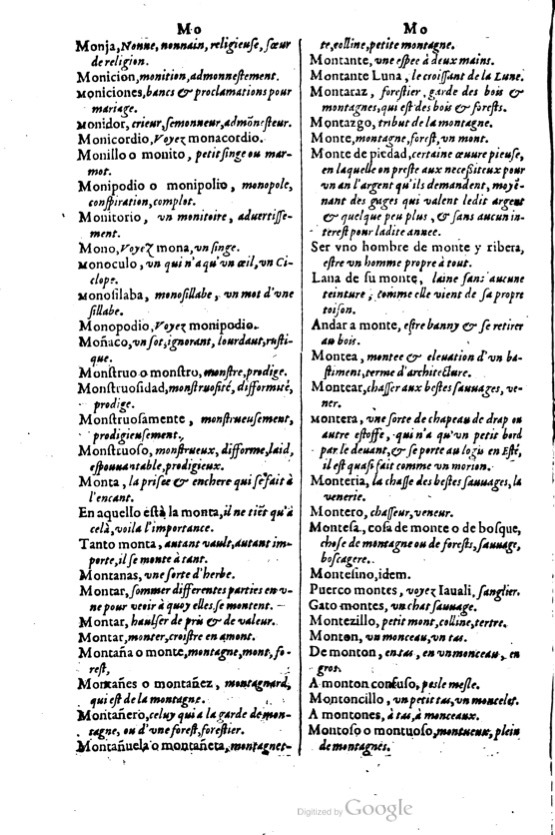 Mo
Monja, Nonne, nonnain, religieuse, sœur
de religion.
Monicion, monition, admonnestement.
Moniciones, bancs & proclamations pour
mariage.
Monidor, crieur, semonneur, admõnesteur.
Monicordio, Voyez monacordio.
Monillo o monito, petit singe ou mar-
mot.
Monipodio o monipolio, monopole,
conspiration, complot.
Monitorio, un monitoire, aduertisse-
ment.
Mono, Voyez mona, un singe.
Monoculo, un qui n'a qu'un œil, un Ci-
clope.
Monosilaba, monosillabe, un mot d'vne
sillabe.
Monopodio, Voyez monipodio.
Moñaco, un sot, ignorant, lourdaut, rusti-
que.
Monstruo o monstro, monstre, prodige.
Monstruosidad, monstruosité, difformité,
prodige.
Monstruosamente, monstrueusement,
prodigieusement.
Monstruoso, monstrueux, difforme, laid,
espouuantable, prodigieux.
Monta, la prisee & enchere qui se fait à
l'encant.
En aquello està la monta, il ne tiẽt qu'à
celà, voila l'importance.
Tanto monta, autant vault, autant im-
porte, il se monte à tant.
Montanas, vne sorte d'herbe.
Montar, sommer differentes parties en v-
ne pour veoir à quoy elles se montent.
Montar, haulser de pris & de valeur.
Montar, monter, croistre en amont.
Montaña o monte, montagne, mont, fo-
rest,
Montañes o montañez, montagnard,
qui est de la montagne.
Montañero, celuy qui a la garde de mon-
tagne, ou d'vne forest, forestier.
Montañuela o montañeta, montagnet-
Mo
te, colline, petite montagne.
Montante, vne espee à deux mains.
Montante Luna, le croissant de la Lune.
Montaraz, forestier, garde des bois &
montagnes, qui est des bois & forests.
Montazgo, tribut de la montagne.
Monte, montagne, forest, un mont.
Monte de piedad, certaine œuure pieuse,
en laquelle on preste aux necessiteux pour
vn an l'argent qu'ils demandent, moyẽ-
nant des gages qui valent ledit argent
& quelque peu plus, & sans aucun in-
terest pour ladite annee.
Ser vno hombre de monte y ribera,
estre vn homme propre à tout.
Lana de su monte, laine sans aucune
teinture, comme elle vient de sa propre
toison.
Andar a monte, estre banny & se retirer
au bois.
Montea, montee & eleuation d'vn ba-
stiment, terme d'architecture.
Montear, chasser aux bestes sauuages, ve-
ner.
Montera, vne sorte de chapeau de drap ou
autre estoffe, qui n'a qu'vn petit bord
par le deuant, & se porte au logis en Esté,
il est quasi fait comme vn morion.
Monteria, la chasse des bestes sauuages, la
venerie.
Montero, chasseur, veneur.
Montesa, cosa de monte o de bosque,
chose de montagne ou de forests, sauuage,
boscagere.
Montesino, idem.
Puerco montes, voyez Iauali, sanglier.
Gato montes, vn chat sauuage.
Montezillo, petit mont, colline, tertre.
Monton, vn monceau, vn tas.
De monton, en tas, en vn monceau, en
gros.
A monton confuso, pesle mesle.
Montoncillo, vn petit tas, vn moncelet.
A montones, à tas, à monceaux.
Montoso o montuoso, montueux, plein
de montagnes.
Digitized by Google